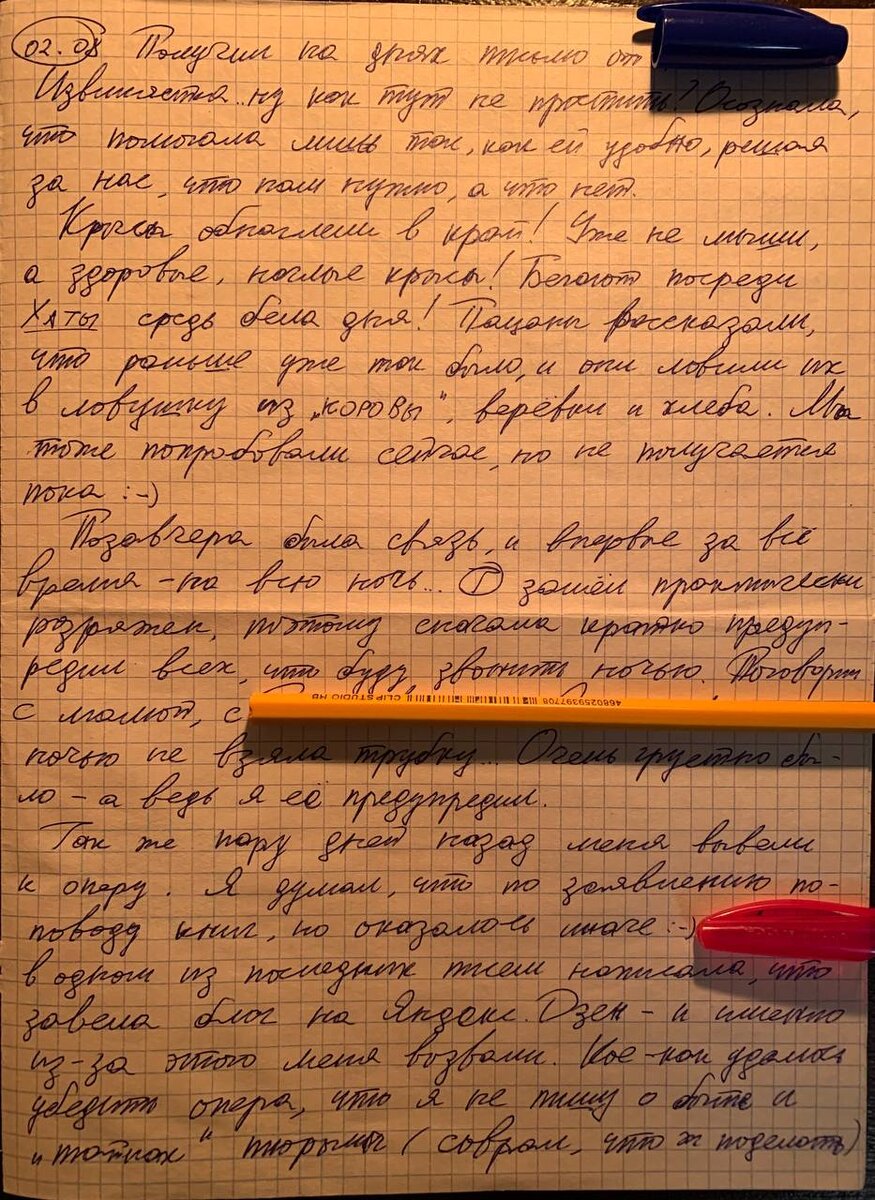 02.08 Получил на днях письмо от
Извиняется.. ну как тут не простить? Осознала,
что помогала лишь так, как ей удобно, решая
за нас, что нам нужно, а что нет.
Крысы обнаглели в край! Уже не мыши,
а здоровые, наглые крысы! Бегают посреди
ХАТЫ средь бела дня! Пацаны рассказали,
что раньше уже так было, и они ловили их
в ловушку из „КОРОВЫ", верёвки и хлеба. Мы
тоже попробовали сейчас, но не получается
пока :-)
Позавчера была связь, и впервые за всё
время - на всю ночь... Я зашёл практически
разряжен, поэтому сначала кратко предуп-
редил всех, что буду звонить ночью. Поговорил
с мамой, с
4680259397708 CLIP STUDIO HB
ночью не взяла трубку... Очень грустно бы-
ло - а ведь я её предупредил.
Так же пару дней назад меня вывели
к оперу. Я думал, что по заявлению по-
поводу книг, но оказалось иначе :-)
в одном из последних писем написала, что
завела блог на Яндекс. Дзен - и именно
из-за этого меня вызвали. Кое-как удалось
убедить опера, что я не пишу о быте и
„тайнах" тюрьмы (соврал, что ж поделать)